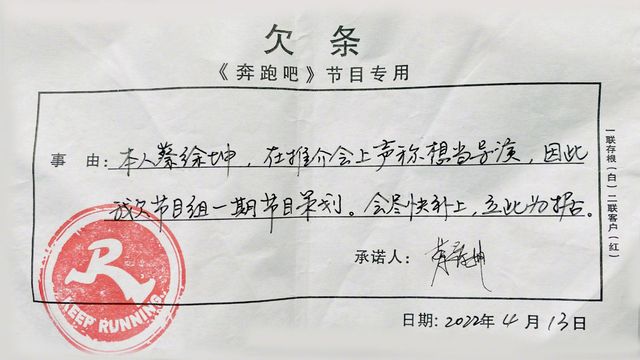 欠条
《奔跑吧》节目专用
事由：本人蔡徐坤，在推介会上声称想当导演，因此
我欠节目组一期节目策划。会尽快补上，立此为据。
承诺人：蔡徐坤
日期：2022年4月13日
一联存根（白）二联客户（红）
R
KEEP RUNNING